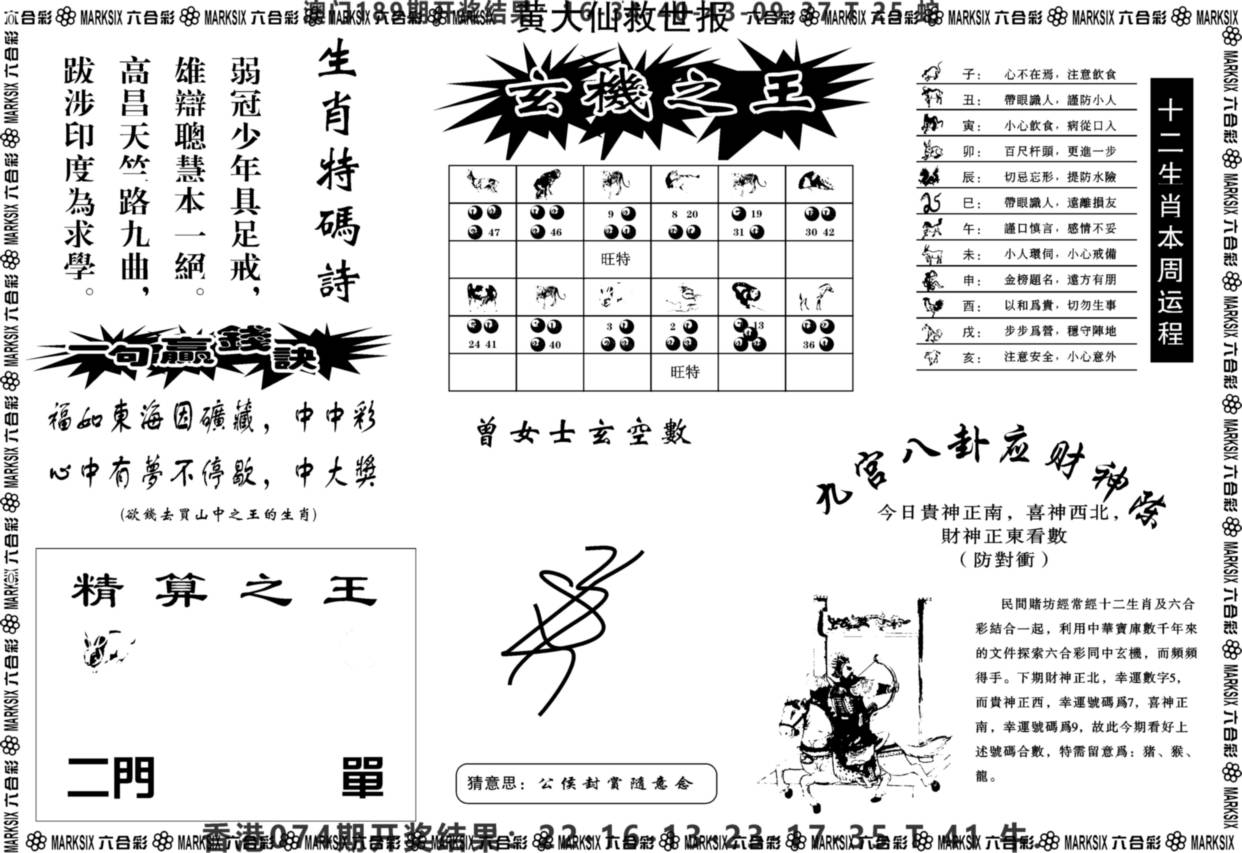 黄大仙救世报
生肖特碼詩
弱冠少年具足戒，
雄辯聰慧本一絕。
高昌天竺路九曲，
跋涉印度為求學。
一句贏錢訣
福如東海因礦藏，中中彩
心中有夢不停歇，中大獎
(欲錢去買山中之王的生肖)
精算之王
二門
單
玄機之王
47
46
9
8 20
19
31
30 42
旺特
24 41
40
3
2
13
36
旺特
曾女士玄空數
猜意思：公侯封賞隨意念
十二生肖本周运程
子：心不在焉，注意飲食
丑：帶眼識人，謹防小人
寅：小心飲食，病從口入
卯：百尺杆頭，更進一步
辰：切忌忘形，提防水險
巳：帶眼識人，遠離損友
午：謹口慎言，感情不妥
未：小人環伺，小心戒備
申：金榜題名，遠方有朋
酉：以和爲貴，切勿生事
戌：步步爲營，穩守陣地
亥：注意安全，小心意外
八卦应财神
今日貴神正南，喜神西北，
財神正東看數
（防對衝）
民間賭坊經常經十二生肖及六合
彩結合一起，利用中華寶庫數千年來
的文件探索六合彩同中玄機，而頻頻
得手。下期財神正北，幸運數字5，
而貴神正西，幸運號碼爲7，喜神正
南，幸運號碼爲9，故此今期看好上
述號碼合數，特需留意爲：豬、猴、
龍。
MARKSIX 六合彩
香港074期开奖结果：22 16 13 23 17 35 T 41 牛